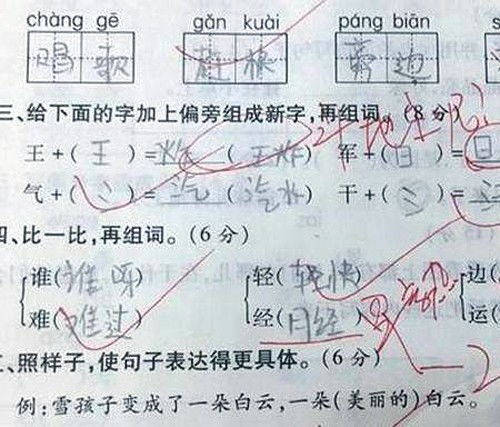 chàng gē gǎn kuài páng biān
唱 歌 赶 快 旁 边
三、给下面的字加上偏旁组成新字,再组词。(8分)
王+(王)= (王炸) 军+(日)=
气+(氵)=汽(汽水) 干+(氵)=
四、比一比,再组词。(6分)
谁(谁呀) 轻(轻快) 边(
难(难过) 经(月经) 运(
、照样子,使句子表达得更具体。(6分)
例:雪孩子变成了一朵白云,一朵(美丽的)白云。